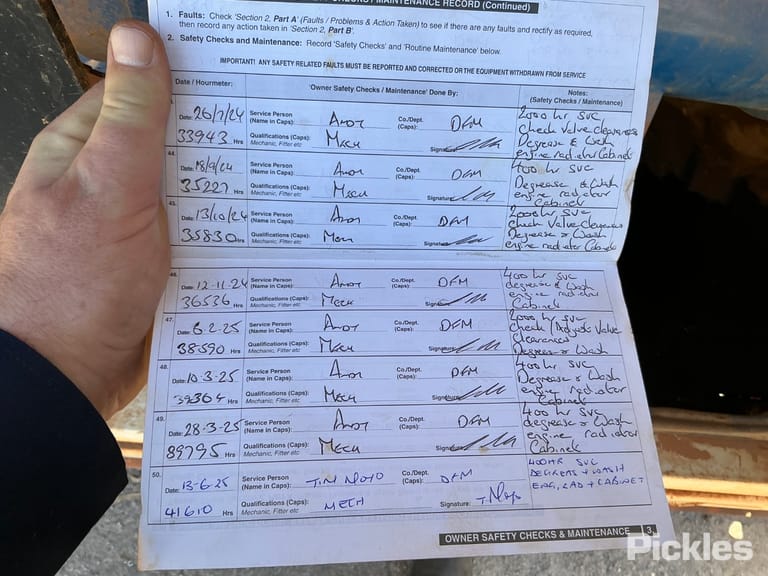 CHECKS / MAINTENANCE RECORD (Continued)
1. Faults: Check 'Section 2, Part A' (Faults / Problems & Action Taken) to see if there are any faults and rectify as required,
then record any action taken in 'Section 2, Part B'.
2. Safety Checks and Maintenance: Record 'Safety Checks' and 'Routine Maintenance' below.
IMPORTANT! ANY SAFETY RELATED FAULTS MUST BE REPORTED AND CORRECTED OR THE EQUIPMENT WITHDRAWN FROM SERVICE
Date / Hourmeter: 'Owner Safety Checks / Maintenance' Done By: Notes:
(Safety Checks / Maintenance)
Date: 26/7/24 Service Person (Name in Caps): ANDY Co./Dept. (Caps): DFM 2000 hr SVC
Check Valve clearances
33943 Hrs Qualifications (Caps): Mechanic, Fitter etc MECH Signature: Degrease & Wash
engine radiator Cabinet
44.
Date: 18/9/24 Service Person (Name in Caps): ANDY Co./Dept. (Caps): DFM 400 hr SVC
35227 Hrs Qualifications (Caps): Mechanic, Fitter etc MECH Signature: Degrease & Wash
engine radiator
Cabinet
45.
Date: 13/10/24 Service Person (Name in Caps): ANDY Co./Dept. (Caps): DFM 2000hr SVC
Check Valve clearances
35830 Hrs Qualifications (Caps): Mechanic, Fitter etc MECH Signature: Degrease & Wash
engine radiator Cabinet
46.
Date: 12-11-24 Service Person (Name in Caps): ANDY Co./Dept. (Caps): DFM 400 hr SVC
degrease & Wash
36536 Hrs Qualifications (Caps): Mechanic, Fitter etc MECH Signature: engine radiator
Cabinet
47.
Date: 6-2-25 Service Person (Name in Caps): ANDY Co./Dept. (Caps): DFM 2000 hr SVC
Check / Adjust Valve
38590 Hrs Qualifications (Caps): Mechanic, Fitter etc MECH Signature: Clearances
Degrease & Wash
48.
Date: 10-3-25 Service Person (Name in Caps): ANDY Co./Dept. (Caps): DFM 400 hr SVC
Degrease & Wash
Hrs Qualifications (Caps): Mechanic, Fitter etc MECH Signature: engine radiator
Cabinet
49.
Date: 28-3-25 Service Person (Name in Caps): ANDY Co./Dept. (Caps): DFM 400 hr SVC
degrease & Wash
89795 Hrs Qualifications (Caps): Mechanic, Fitter etc MECH Signature: engine radiator
Cabinet
50.
Date: 13-6-25 Service Person (Name in Caps): TIM Co./Dept. (Caps): DFM 400HR SVC
DEGREAS + WASH
41610 Hrs Qualifications (Caps): Mechanic, Fitter etc MECH Signature: ENG, RAD + CABINET
OWNER SAFETY CHECKS & MAINTENANCE 3
Pickles